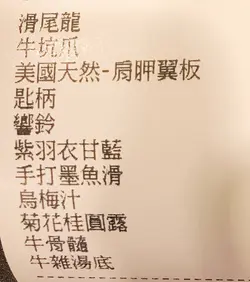 滑尾龍
牛坑爪
美國天然-肩胛翼板
匙柄
響鈴
紫羽衣甘藍
手打墨魚滑
烏梅汁
菊花桂圓露
牛骨髓
牛雜湯底